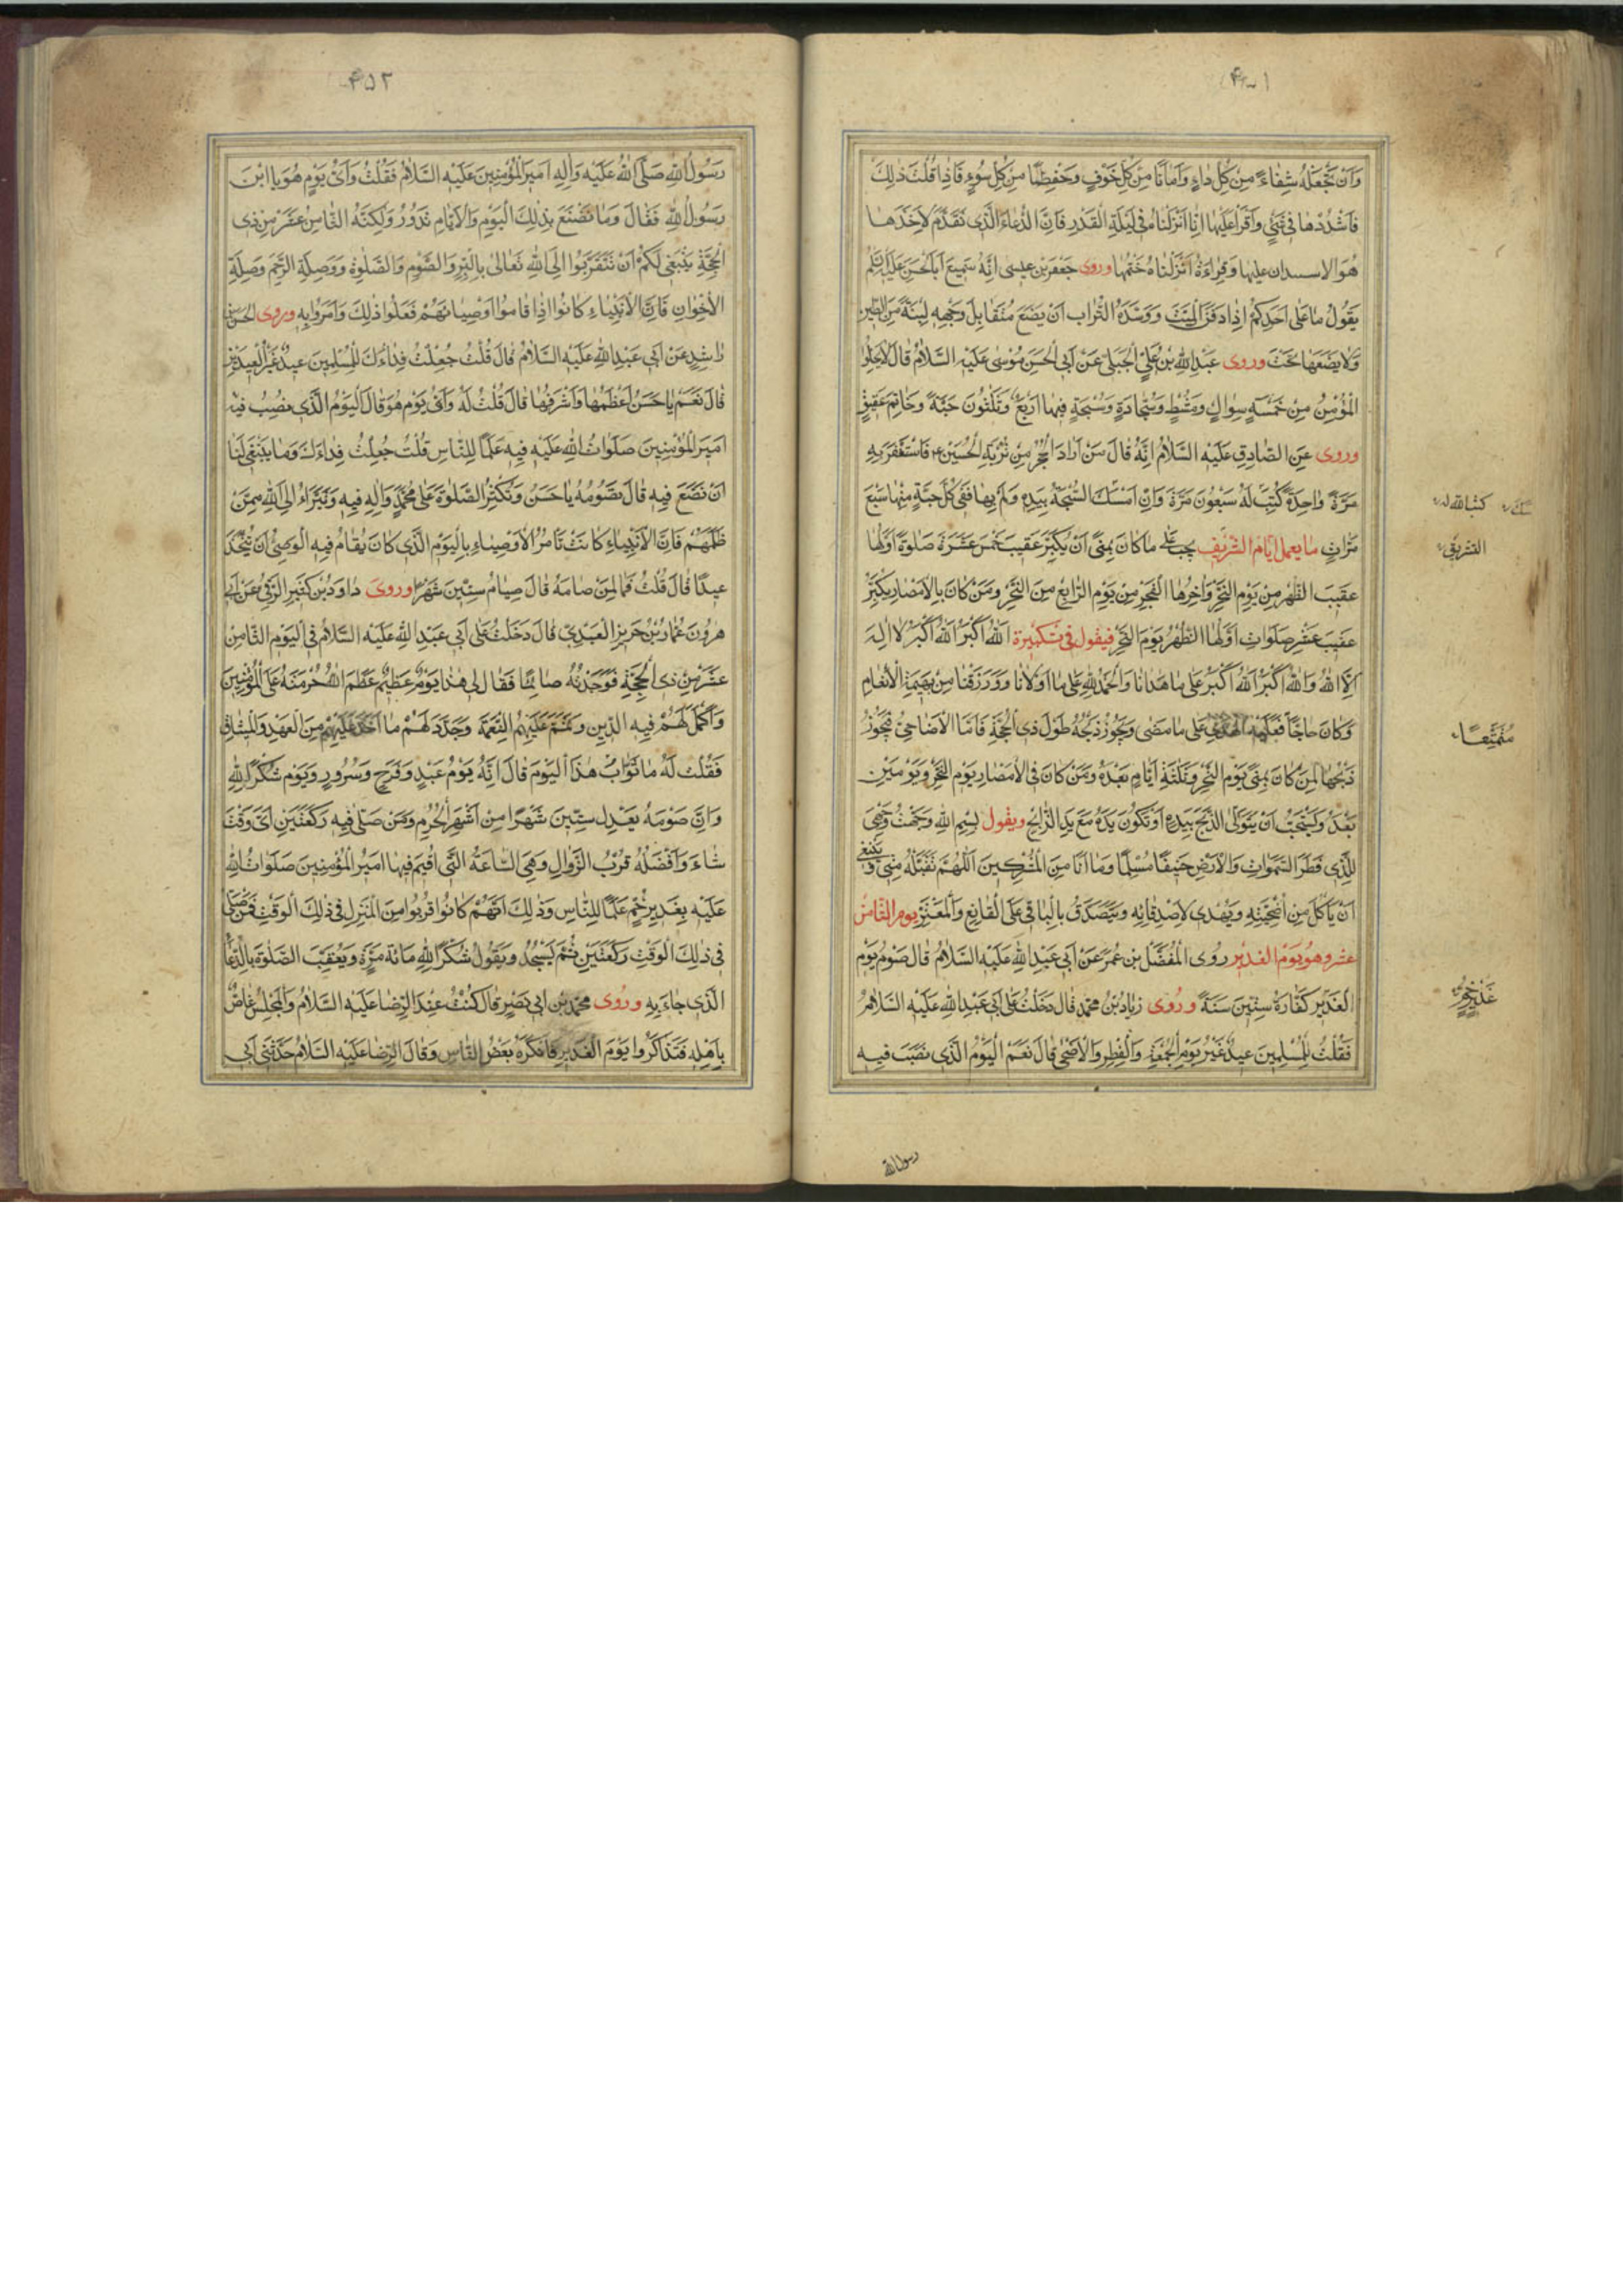 وَاَنْ تَجْعَلَهُ شِفَاءً مِنْ كُلِّ دَاءٍ وَاَمَانًا مِنْ كُلِّ خَوْفٍ وَحِفْظًا مِنْ كُلِّ سُوءٍ فَاِذَا قُلْتَ ذٰلِكَ
فَاشْدُدْهَا فِي شَيْءٍ وَاقْرَأْ عَلَيْهَا اِنَّا اَنْزَلْنَاهُ فِي لَيْلَةِ الْقَدْرِ فَاِنَّ الدُّعَاءَ الَّذِي تَقَدَّمَ لِاَخْذِهَا
هُوَ الاستیدان عليها وَقِرَاءَةُ اَنْزَلْنَاهُ خَتْمُهَا وروى جَعْفَر بْن عِيسَى اِنَّهُ سَمِيعَ اَبَا الْحَسَنِ عَلَيْهِ السَّلَمُ
يَقُولُ مَا عَلَى اَحَدِكُمْ اِذَا دَفَنَ الْمَيِّتَ وَوَسَّدَهُ التُّرَابَ اَنْ يَضَعَ مُتَقَابِلَ وَجْهِهِ لَبِنَةً مِنَ الطِّينِ
وَلَا يَضَعَهَا تَحْتَ وروى عَبْدِ اللّٰهِ بْنُ عَلِيٍّ الْجَبَلِي عَنْ اَبِي الْحَسَنِ مُوسَى عَلَيْهِ السَّلَامُ قَالَ لَا يَخْلُوا
الْمُؤْمِنُ مِنْ خَمْسَةٍ سِوَاكٍ وَمُشْطٍ وَسَجَّادَةٍ وَسُبْحَةٍ فِيهَا اَرْبَعٌ وَثَلٰثُونَ حَبَّةً وَخَاتَمِ عَقِيقٍ
وروى عَنِ الصَّادِقِ عَلَيْهِ السَّلَامُ اِنَّهُ قَالَ مَنْ اَرَادَ الْحَجَرَ مِنْ تُرْبَةِ الْحُسَيْنِ ع فَاسْتَغْفَرَ بِهِ
مَرَّةً وَاحِدَةً كُتِبَ لَهُ سَبْعُونَ مَرَّةً وَاِنْ اَمْسَكَ السُّبْحَةَ بِيَدِهِ وَلَمْ بِهَا فَفِي كُلِّ حَبَّةٍ مِنْهَا سَبْعَ
كتب الله له
مَرَّاتٍ مَا يعمل ايام التشريف يجب على مَا كَانَ بِمِنًى اَنْ يُكَبِّرَ عَقِيبَ خَمْسَ عَشَرَةَ صَلٰوةً اَوَّلُهَا
التشريق
عَقِيبَ الظُّهْرِ مِنْ يَوْمِ النَّحْرِ وَاٰخِرُهَا الْفَجْرِ مِنْ يَوْمِ الرَّابِعِ مِنَ النَّحْرِ وَمَنْ كَانَ بِالْاَمْصَارِ يُكَبِّرُ
عَقِيبَ عَشْرِ صَلَوَاتٍ اَوَّلُهَا الظُّهْرُ يَوْمَ النَّحْرِ فيقول في تكبيرة اَللّٰهُ اَكْبَرُ اَللّٰهُ اَكْبَرُ لَا اِلٰهَ
اِلَّا اللّٰهُ وَاللّٰهُ اَكْبَرُ اَللّٰهُ اَكْبَرُ عَلَى مَا هَدَانَا وَالْحَمْدُ لِلّٰهِ عَلَى مَا اَوْلَانَا وَرَزَقَنَا مِنْ بَهِيمَةِ الْاَنْعَامِ
وَكَانَ حَاجًّا فَعَلَيْهِ الْهَدْيُ عَلَى مَا مَضَى وَيَجُوزُ ذَبْحُهُ طُولَ ذِي الْحِجَّةِ فَامَّا الْاَضَاحِيُّ فَيَجُوزُ
مُتَمَتِّعًا
ذَبْحُهَا لِمَنْ كَانَ بِمِنًى يَوْمَ النَّحْرِ وَثَلٰثَةِ اَيَّامٍ بَعْدَهُ وَمَنْ كَانَ فِي الْاَمْصَارِ يَوْمِ النَّحْرِ وَيَوْمَيْنِ
بَعْدَ وَيُسْتَحَبُّ اَنْ يَتَوَلَّى الذَّبْحَ بِيَدِهِ اَوْ تَكُونَ يَدُهُ مَعَ يَدِ الذَّابِحِ ويقول بِسْمِ اللّٰهِ وَجَّهْتُ وَجْهِيَ
لِلَّذِي فَطَرَ السَّمٰوَاتِ وَالْاَرْضِ حَنِيفًا مُسْلِمًا وَمَا اَنَا مِنَ الْمُشْرِكِينَ اَللّٰهُمَّ تَقَبَّلْهُ مِنِّي وَيَنْبَغِي
اَنْ يَاْكُلَ مِنْ اُضْحِيَّتِهِ وَيُهْدِي لِاَصْدِقَائِهِ وَيَتَصَدَّقُ بِالْبَاقِي عَلَى الْقَانِعِ وَالْمُعْتَرِّ يوم الثامن
عشر وهو يوم الغدير رَوَى الْمُفَضَّلُ بْنِ عُمَرَ عَنْ اَبِي عَبْدِ اللّٰهِ عَلَيْهِ السَّلَامُ قَالَ صَوْمُ يَوْمِ
الْغَدِيرِ كَفَّارَةُ سِتِّينَ سَنَةً وَرُوِى زِيَادُ بْنُ مُحَمَّدٍ قَالَ دَخَلْتُ عَلَى اَبِي عَبْدِ اللّٰهِ عَلَيْهِ السَّلَامُ
غَدِيرِ خُمٍّ
فَقُلْتُ لِلْمُسْلِمِينَ عِيدٌ غَيْرُ يَوْمِ الْجُمْعَةِ وَالْفِطْرِ وَالْاَضْحَى قَالَ نَعَمْ الْيَوْمُ الَّذِي نَصَبَ فِيهِ
رسول الله
۴۵۲
رَسُولُ اللّٰهِ صَلَّى اللّٰهُ عَلَيْهِ وَاٰلِهِ اَمِيرَ الْمُؤْمِنِينَ عَلَيْهِ السَّلَامُ فَقُلْتُ وَاَيُّ يَوْمٍ هُوَ يَا ابْنَ
رَسُولِ اللّٰهِ فَقَالَ وَمَا تَصْنَعُ بِذٰلِكَ الْيَوْمِ وَالْاَيَّامِ تَدُورُ وَلٰكِنَّهُ الثَّامِنُ عَشَرَ مِنْ ذِي
الْحِجَّةِ يَنْبَغِي لَكُمْ اَنْ تَتَقَرَّبُوا اِلَى اللّٰهِ تَعَالَى بِالْبِرِّ وَالصَّوْمِ وَالصَّلٰوةِ وَوَصِلَةِ الرَّحِمِ وَصِلَةِ
الْاَخْوَانِ فَاِنَّ الْاَنْبِيَاءِ كَانُوا اِذَا قَامُوا اَوْصِيَائَهُمْ فَعَلُوا ذٰلِكَ وَاَمَرُوا بِهِ وروى الحسن بن
رَاشِدٍ عَنْ اَبِي عَبْدِ اللّٰهِ عَلَيْهِ السَّلَامُ قَالَ قُلْتُ جُعِلْتُ فِدَاءَكَ لِلْمُسْلِمِينَ عِيدٌ غَيْرُ الْعِيدَيْنِ
قَالَ نَعَمْ يَا حَسَنُ اَعْظَمُهَا وَاَشْرَفُهَا قَالَ قُلْتُ لَهُ وَاَيُّ يَوْمٍ هُوَ قَالَ اَلْيَوْمُ الَّذِي نُصِبَ فِيهِ
اَمِيرَ الْمُؤْمِنِينَ صَلَوَاتُ اللّٰهِ عَلَيْهِ فِيهِ عَلَمًا لِلنَّاسِ قُلْتُ جُعِلْتُ فِدَاءَكَ وَمَا يَنْبَغِي لَنَا
اَنْ نَصْنَعَ فِيهِ قَالَ تَصُومُهُ يَا حَسَنُ وَتُكْثِرُ الصَّلٰوةَ عَلَى مُحَمَّدٍ وَاٰلِهِ فِيهِ وَتَبَرَّاءُ اِلَى اللّٰهِ مِمَّنْ
ظَلَمَهُمْ فَاِنَّ الْاَنْبِيَاءِ كَانَتْ تَاْمُرُ الْاَوْصِيَاءِ بِالْيَوْمِ الَّذِي كَانَ يُقَامُ فِيهِ الْوَصِيُّ اَنْ يُتَّخَذَ
عِيدًا قَالَ قُلْتُ فَمَا لِمَنْ صَامَهُ قَالَ صِيَامُ سِتِّينَ شَهْرًا وروى دَاوَدُ بْنُ كَثِيرِ الرَّقِّيُّ عَنْ اَبِي
هٰرُونَ عَمَّارِ بْنُ حَرِيزِ الْعَبْدِيِّ قَالَ دَخَلْتُ عَلَى اَبِي عَبْدِ اللّٰهِ عَلَيْهِ السَّلَامُ فِي الْيَوْمِ الثَّامِنَ
عَشَرَ مِنْ ذِي الْحِجَّةِ فَوَجَدْتُهُ صَائِمًا فَقَالَ لِي هٰذَا يَوْمٌ عَظِيمٌ عَظَّمَ اللّٰهُ حُرْمَتَهُ عَلَى الْمُؤْمِنِينَ
وَاَكْمَلَ لَهُمْ فِيهِ الدِّينِ وَتَمَّمَ عَلَيْهِمُ النِّعْمَةَ وَجَدَّدَ لَهُمْ مَا اَخَذَ عَلَيْهِمْ مِنَ الْعَهْدِ وَالْمِيثَاقِ
فَقُلْتُ لَهُ مَا ثَوَابُ هٰذَا الْيَوْمَ قَالَ اِنَّهُ يَوْمُ عِيدٍ وَفَرَحٍ وَسُرُورٍ وَيَوْمِ شُكْرًا لِلّٰهِ
وَاِنَّ صَوْمَهُ يَعْدِلُ سِتِّينَ شَهْرًا مِنْ اَشْهُرِ الْحُرُمِ وَمَنْ صَلَّى فِيهِ رَكْعَتَيْنِ اَيَّ وَقْتٍ
شَاءَ وَاَفْضَلُهُ قُرْبُ الزَّوَالِ وَهِيَ السَّاعَةُ الَّتِي اُقِيمَ فِيهَا اَمِيرُ الْمُؤْمِنِينَ صَلَوَاتُ اللّٰهِ
عَلَيْهِ بِغَدِيرِ خُمٍّ عَلَمًا لِلنَّاسِ وَذٰلِكَ اَنَّهُمْ كَانُوا قَرُبُوا مِنَ الْمَنْزِلِ فِي ذٰلِكَ الْوَقْتِ فَمَنْ صَلَّى
فِي ذٰلِكَ الْوَقْتِ رَكْعَتَيْنِ ثُمَّ يَسْجُدُ وَيَقُولُ شُكْرًا لِلّٰهِ مِائَةَ مَرَّةٍ وَيُعَقِّبَ الصَّلٰوةَ بِالدُّعَاءِ
الَّذِي جَاءَ بِهِ ورُوى مُحَمَّد بْن اَبِي نَصِير قَالَ كُنْتُ عِنْدَ الرِّضَا عَلَيْهِ السَّلَامُ وَالْمَجْلِسُ غَاصٌّ
بِاَهْلِهِ فَتَذَاكَرُوا يَوْمَ الْغَدِيرِ فَانْكَرَهُ بَعْضُ النَّاسِ وَقَالَ الرِّضَا عَلَيْهِ السَّلَامُ حَدَّثَنِي اَبِي